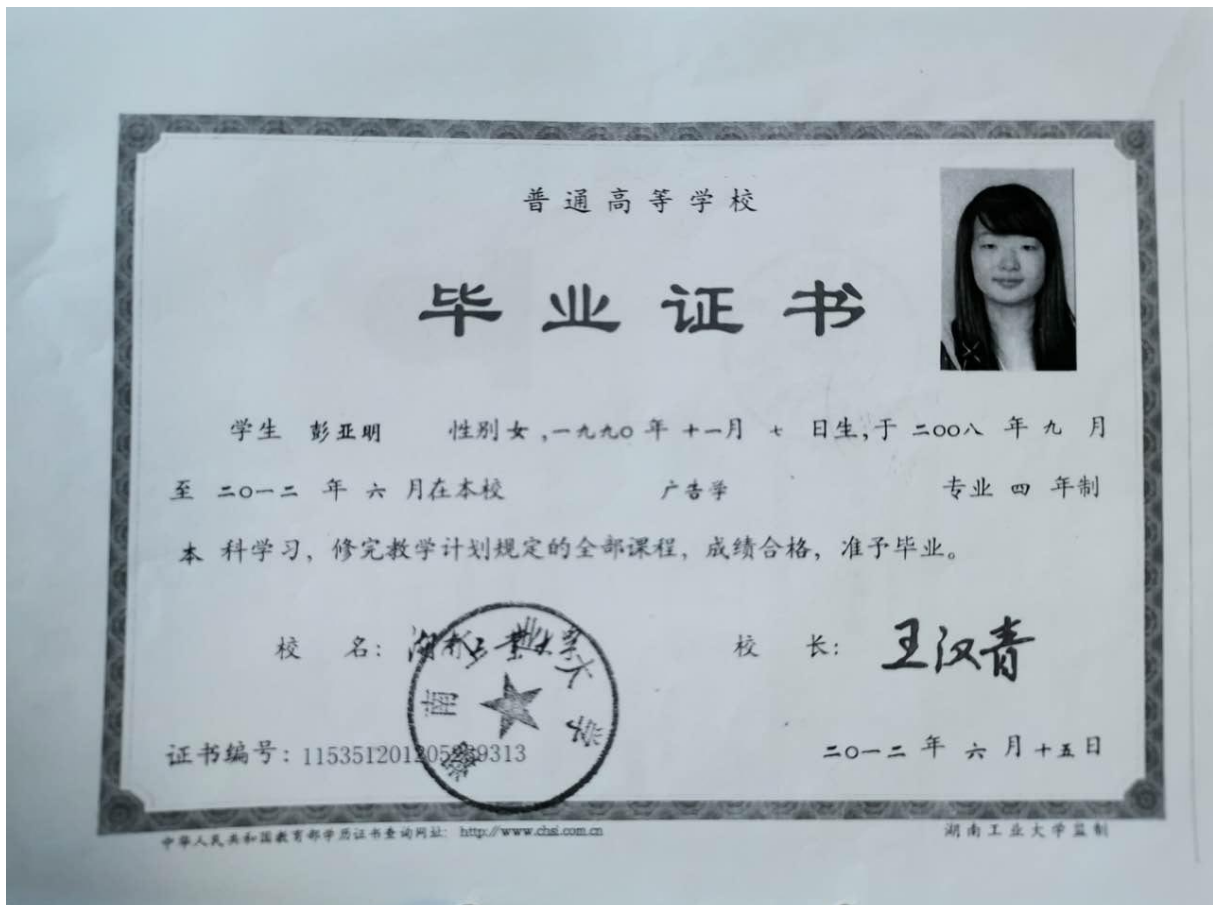 普通高等学校
毕业证书
学生 彭亚明 性别女,一九九〇年十一月七日生,于二〇〇八年九月
至二〇一二年六月在本校 广告学 专业 四 年制
本科学习,修完教学计划规定的全部课程,成绩合格,准予毕业。
校 名: 湖南工业大学 校 长: 王汉青
湖南工业大学
证书编号: 二〇一二年六月十五日
中华人民共和国教育部学历证书查询网址: http://www.chsi.com.cn 湖南工业大学监制